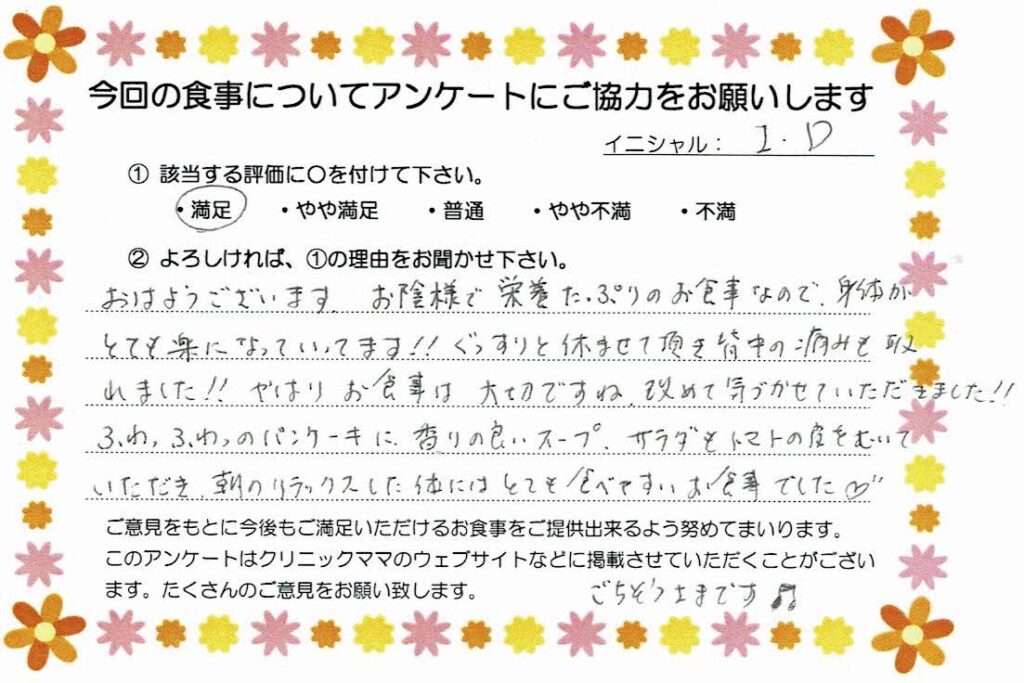 今回の食事についてアンケートにご協力をお願いします
イニシャル： I・D
① 該当する評価に〇を付けて下さい。
・満足 ・やや満足 ・普通 ・やや不満 ・不満
② よろしければ、①の理由をお聞かせ下さい。
おはようございます。お陰様で栄養たっぷりのお食事なので、身体が
とても楽になっていってます!! ぐっすりと休ませて頂き背中の痛みも取
れました!! やはりお食事は大切ですね。改めて気づかせていただきました!!
ふわっふわっのパンケーキに、香りの良いスープ、サラダもトマトの皮をむいて
いただき、朝のリラックスした体にはとても食べやすいお食事でした♡"
ご意見をもとに今後もご満足いただけるお食事をご提供出来るよう努めてまいります。
このアンケートはクリニックママのウェブサイトなどに掲載させていただくことがござい
ます。たくさんのご意見をお願い致します。
ごちそうさまです♫